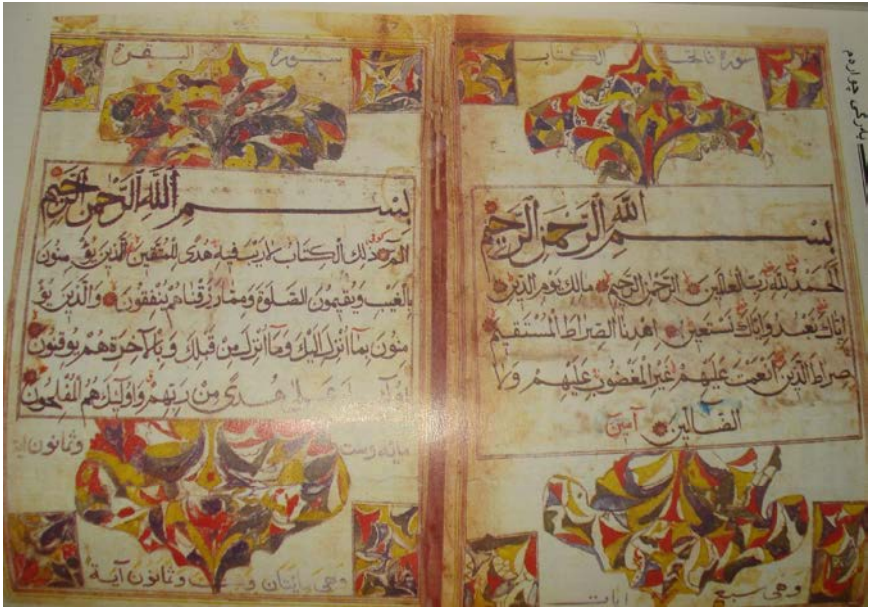 بەرگی چواردەم
سورة فاتحة الكتاب
بِسْمِ اللَّهِ الرَّحْمَنِ الرَّحِيمِ
اَلْحَمْدُ لِلَّهِ رَبِّ الْعَالَمِينَ الرَّحْمَنِ الرَّحِيمِ مَالِكِ يَوْمِ الدِّينِ
اِيَّاكَ نَعْبُدُ وَاِيَّاكَ نَسْتَعِينُ اِهْدِنَا الصِّرَاطَ الْمُسْتَقِيمَ
صِرَاطَ الَّذِينَ اَنْعَمْتَ عَلَيْهِمْ غَيْرِ الْمَغْضُوبِ عَلَيْهِمْ وَلَا
الضَّالِّينَ آمين
وهي سبع ايات
سورة البقرة
بِسْمِ اللَّهِ الرَّحْمَنِ الرَّحِيمِ
الم ذَلِكَ الْكِتَابُ لَارَيْبَ فِيهِ هُدًى لِلْمُتَّقِينَ الَّذِينَ يُؤْ مِنُونَ
بِالْغَيْبِ وَيُقِيمُونَ الصَّلَوةَ وَمِمَّا رَزَقْنَاهُمْ يُنْفِقُونَ وَالَّذِينَ يُؤْ
مِنُونَ بِمَا اُنْزِلَ اِلَيْكَ وَمَا اُنْزِلَ مِنْ قَبْلِكَ وَبِالْآخِرَةِ هُمْ يُوقِنُونَ
عَلَى هُدًى مِنْ رَبِّهِمْ وَاُولَئِكَ هُمُ الْمُفْلِحُونَ
وثمانون اية
وهي وثمانون آية